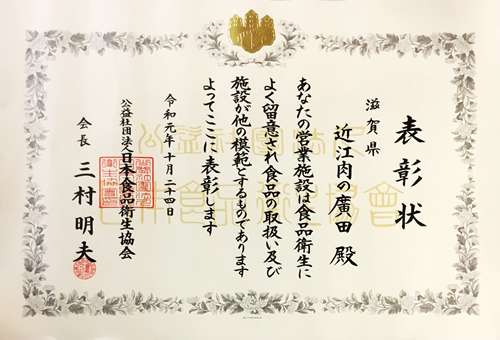 表彰状
滋賀県
近江肉の廣田 殿
あなたの営業施設は食品衛生に
よく留意され食品の取扱い及び
施設が他の模範とするものであります
よってここに表彰します
令和元年十月二十四日
公益社団法人日本食品衛生協会
会長 三村明夫